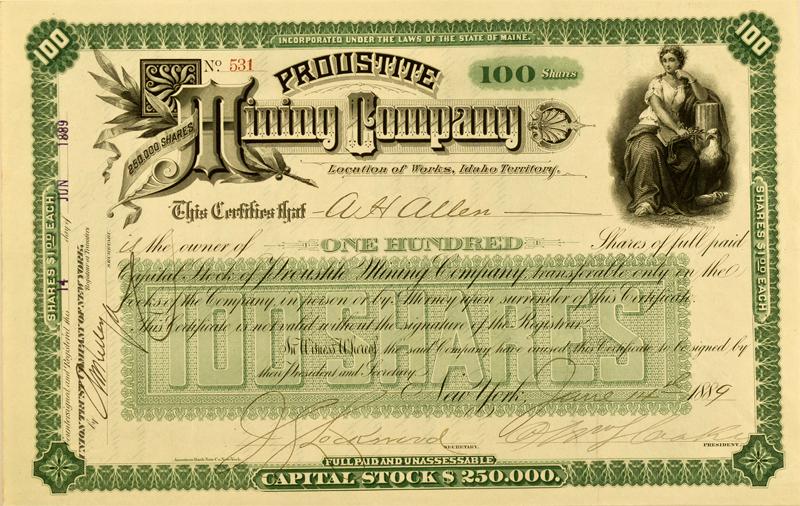 100
INCORPORATED UNDER THE LAWS OF THE STATE OF MAINE.
100
No. 531
PROUSTITE
100 Shares
250,000 SHARES
Mining Company
Location of Works, Idaho Territory.
This Certifies that A H Allen
is the owner of ONE HUNDRED Shares of full paid
Capital Stock of Proustite Mining Company, transferable only on the
books of the Company, in person or by Attorney upon surrender of this Certificate.
This Certificate is not valid without the signature of the Registrar.
In Witness Whereof the said Company have caused this Certificate to be signed by
their President and Secretary.
100 SHARES
New York, June 14th 1889
J. Lockwood
SECRETARY.
PRESIDENT.
American Bank Note Co. New York.
FULL PAID AND UNASSESSABLE
CAPITAL STOCK $250.000.
SHARES $1.00 EACH
SHARES $1.00 EACH
Countersigned and Registered this 14 day of JUN 1889
UNION TRUST COMPANY OF NEW YORK,
Registrar of Transfers
by
SECRETARY